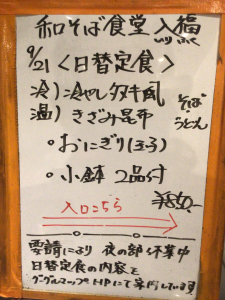 和そば食堂 入福
9/21 〈日替定食〉
冷)冷やしタヌキ風
温)きざみ昆布
そば
うどん
・おにぎり(玉子)
・小鉢 2品付
¥850-
入口こちら
要請により 夜の部は休業中
日替定食の内容を
グーグルマップ、HPにて案内しています